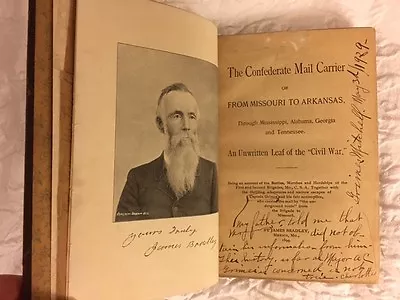 Yours Truly
James Bradley
The Confederate Mail Carrier
OR
FROM MISSOURI TO ARKANSAS,
Through Mississippi, Alabama, Georgia
and Tennessee.
An Unwritten Leaf of the "Civil War."
Being an account of the Battles, Marches and Hardships of the
First and Second Brigades, Mo., C. S. A. Together with
the thrilling adventures and narrow escapes of
Captain Grimes and his fair accomplice,
who carried the mail by "the un-
derground route" from
the brigade to
BY JAMES BRADLEY,
Mexico, Mo.,
1894.
Mitchell May 3rd 1929-
My father told me that
did not ob-
tain his information from him-
This history, as far as Major A. C.
concerned is not
true-